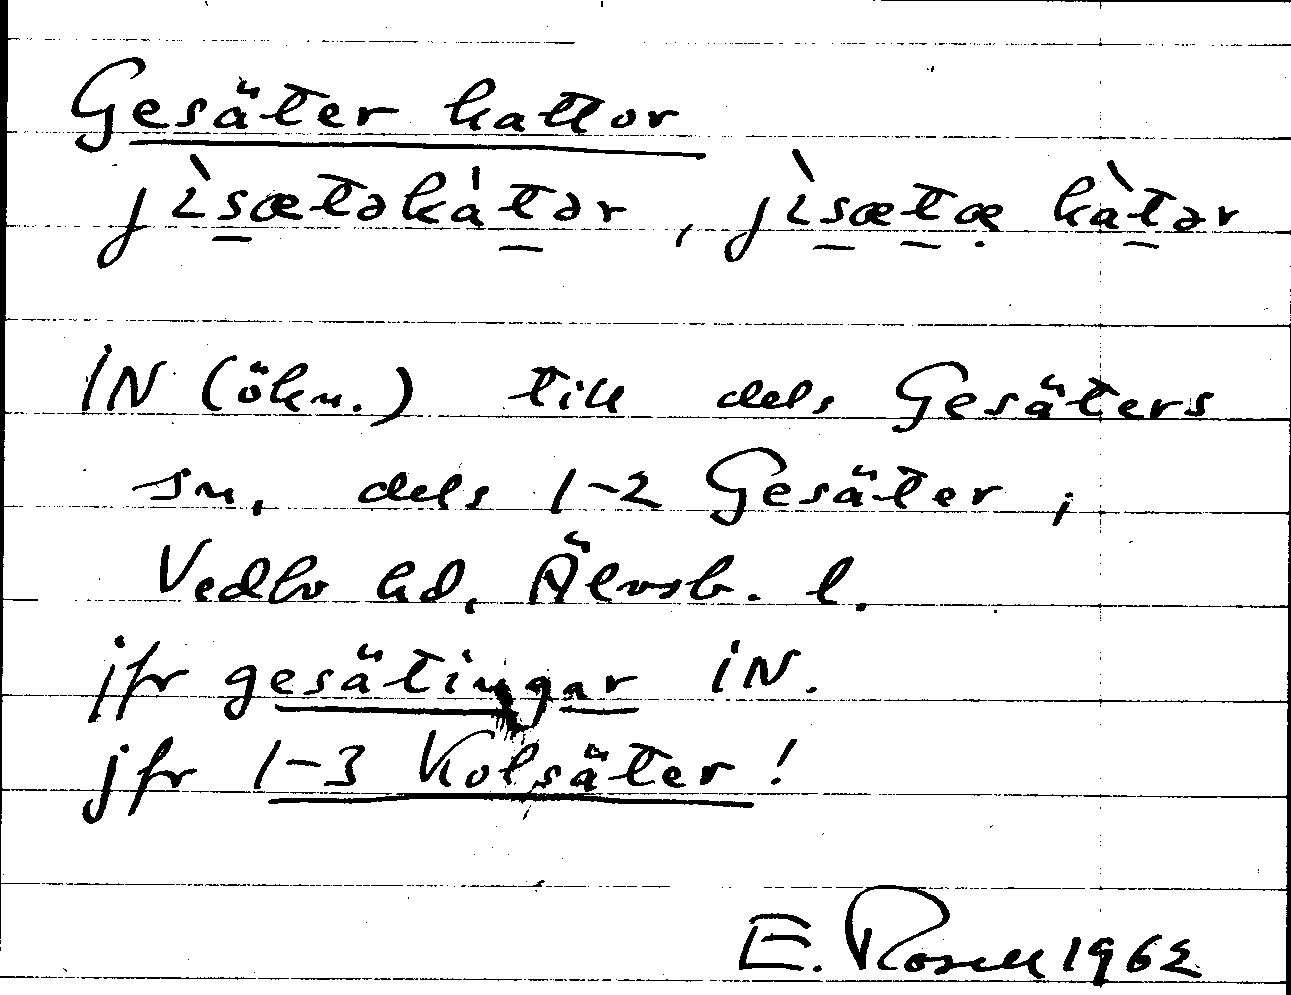 Gesäter kattor
jìsætəkátər, jìsætæ̣ kàtər
IN (ökn.) till dels Gesäters
sn, dels 1-2 Gesäter;
Vedbo hd, Älvsb. l.
jfr gesätingar IN.
jfr 1-3 Kolsäter!
E. Rosell 1962